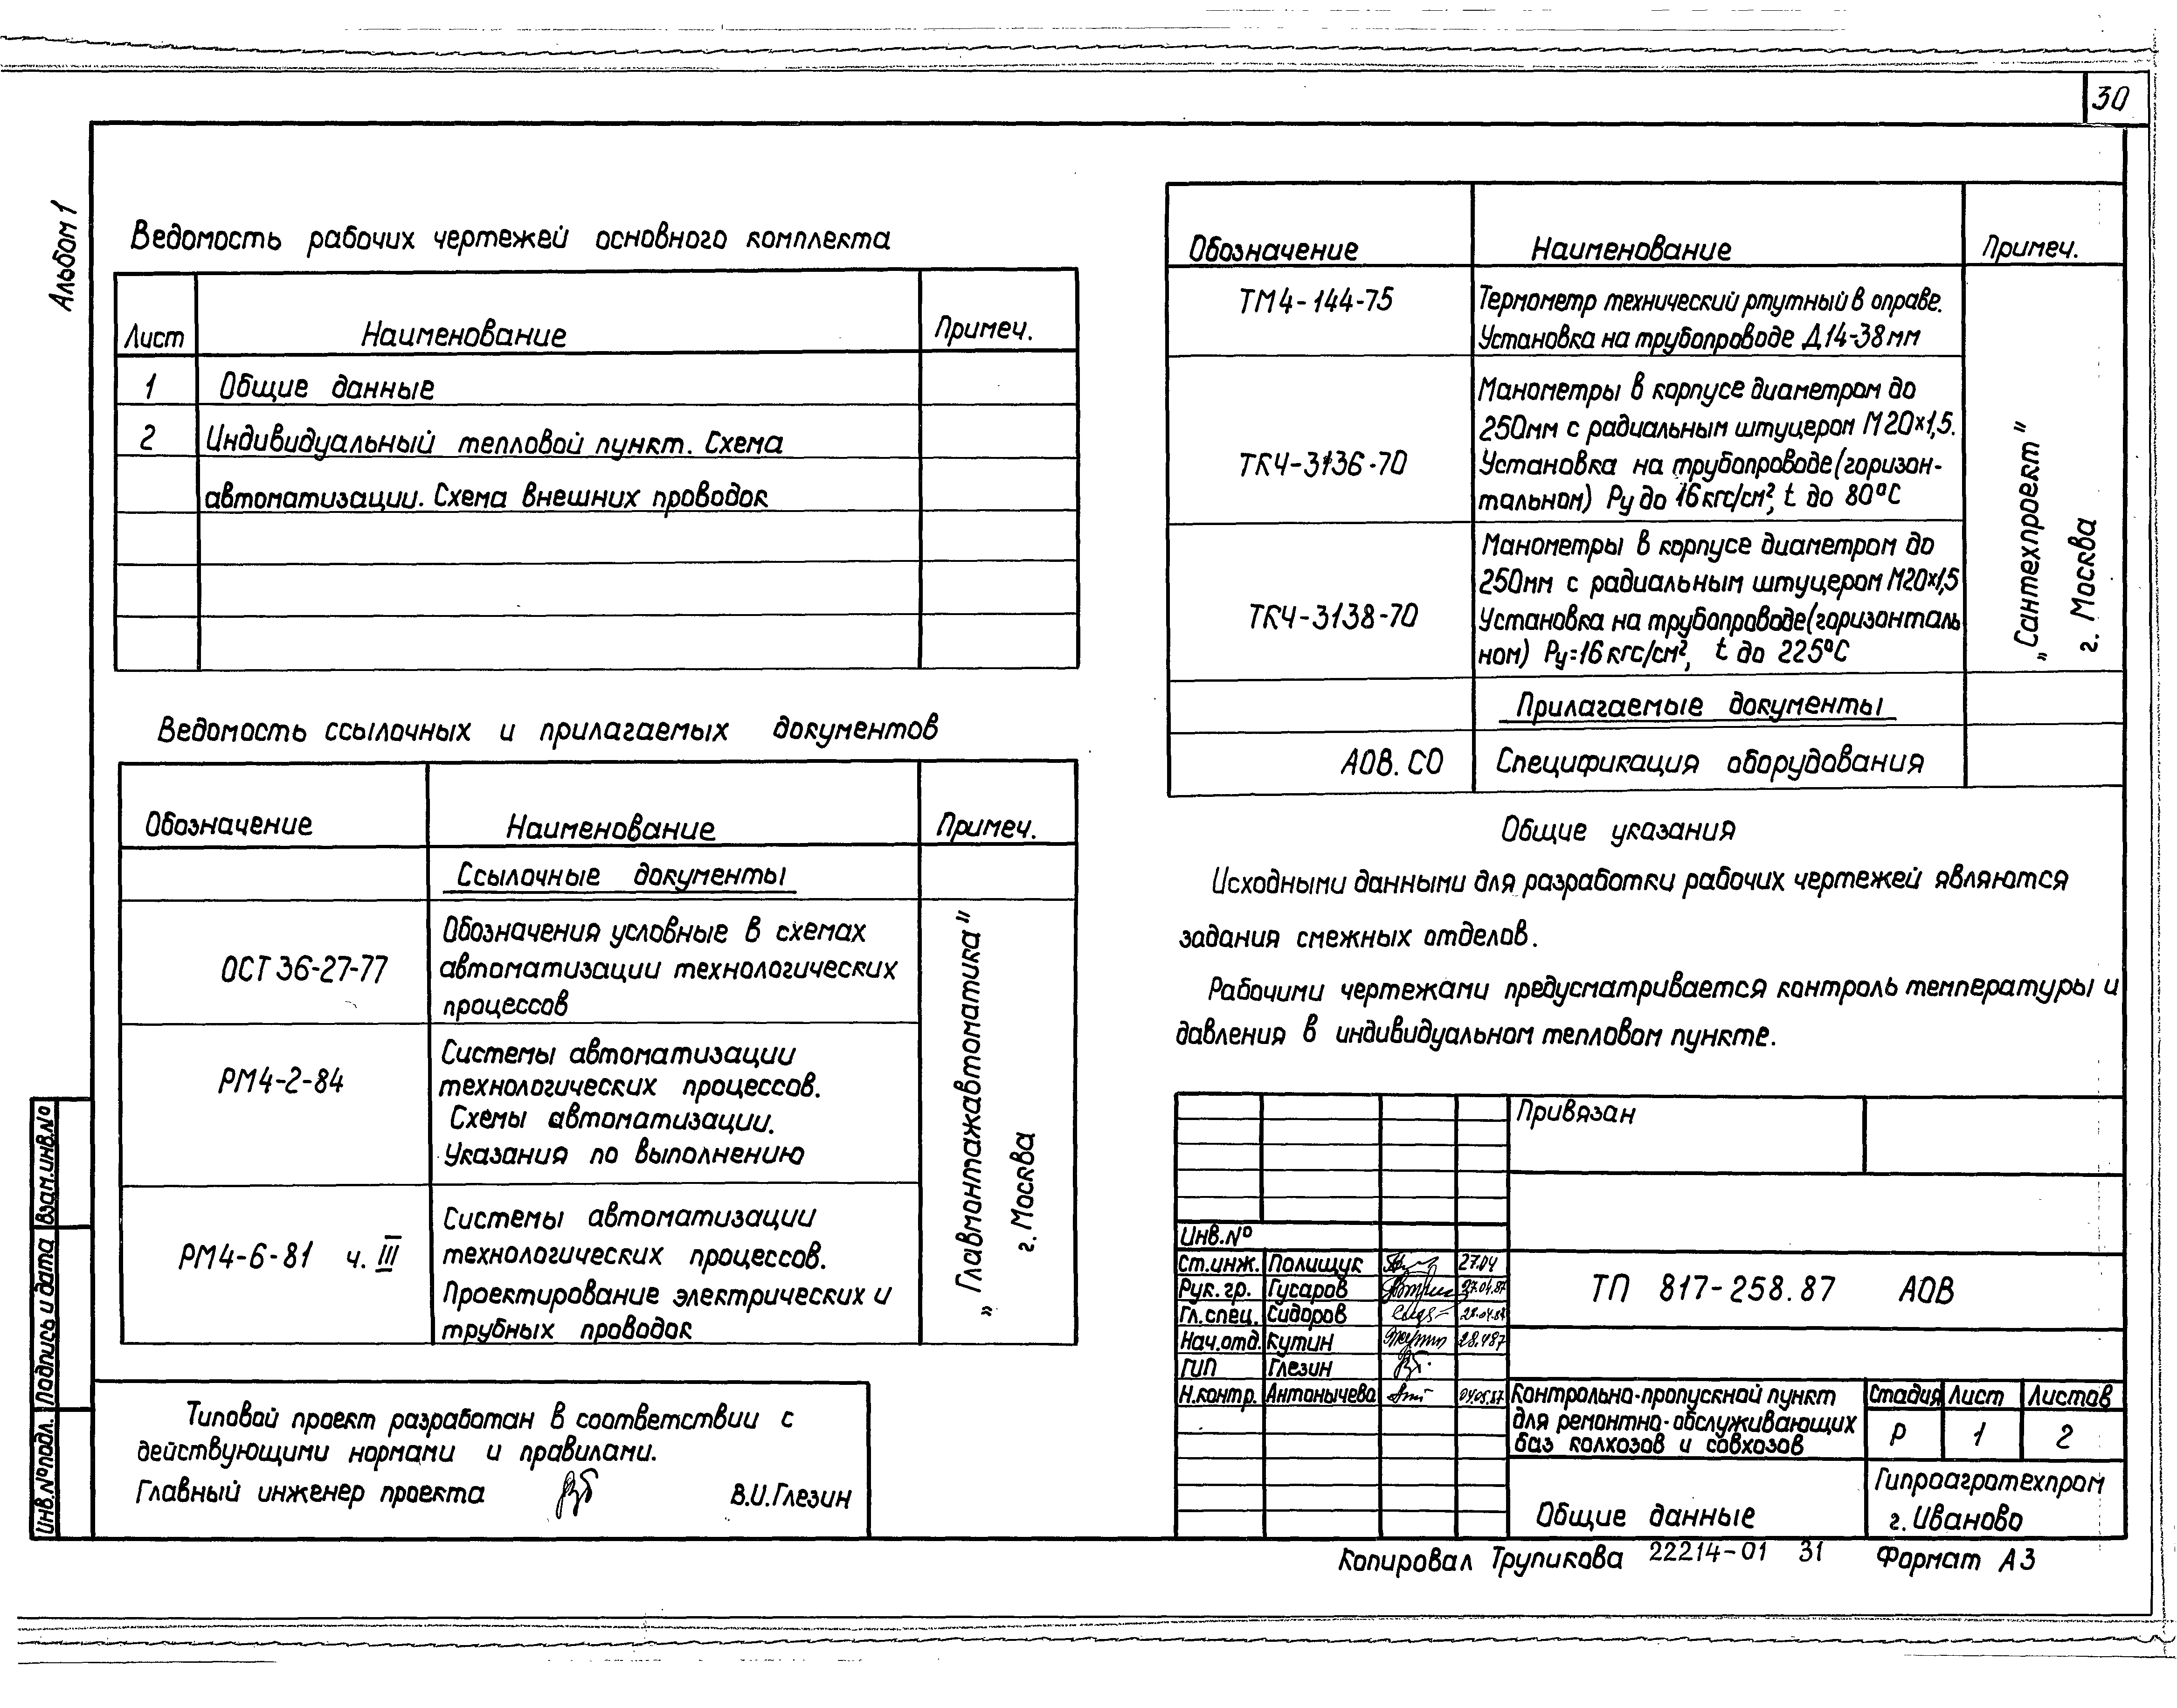 30
Альбом 1
Ведомость рабочих чертежей основного комплекта
Лист Наименование Примеч.
1 Общие данные
2 Индивидуальный тепловой пункт. Схема
автоматизации. Схема внешних проводок
Ведомость ссылочных и прилагаемых документов
Обозначение Наименование Примеч.
Ссылочные документы
ОСТ 36-27-77
Обозначения условные в схемах
автоматизации технологических
процессов
РМ4-2-84
Системы автоматизации
технологических процессов.
Схемы автоматизации.
Указания по выполнению
РМ4-6-81 ч. III
Системы автоматизации
технологических процессов.
Проектирование электрических и
трубных проводок
„Главмонтажавтоматика"
г. Москва
Типовой проект разработан в соответствии с
действующими нормами и правилами.
Главный инженер проекта В.И.Глезин
Взам.инв.№
Подпись и дата
Инв.№подл.
Обозначение Наименование Примеч.
ТМ4-144-75
Термометр технический ртутный в оправе.
Установка на трубопроводе Д14-38мм
ТК4-3136-70
Манометры в корпусе диаметром до
250мм с радиальным штуцером М20×1,5.
Установка на трубопроводе(горизон-
тальном) Ру до 16кгс/см², t до 80°С
ТК4-3138-70
Манометры в корпусе диаметром до
250мм с радиальным штуцером М20×1,5
Установка на трубопроводе(горизонталь
ном) Ру=16кгс/см², t до 225°С
„Сантехпроект"
г. Москва
Прилагаемые документы
АОВ.СО Спецификация оборудования
Общие указания
Исходными данными для разработки рабочих чертежей являются
задания смежных отделов.
Рабочими чертежами предусматривается контроль температуры и
давления в индивидуальном тепловом пункте.
Привязан
Инв.№
Ст.инж. Полищук 27.04
Рук.гр. Гусаров 27.04.87
Гл.спец. Сидоров
Нач.отд. Кутин 28.487
ГИП Глезин
Н.контр. Антонычева 04.05.87
ТП 817-258.87 АОВ
Контрольно-пропускной пункт
для ремонтно-обслуживающих
баз колхозов и совхозов
Стадия Лист Листов
Р 1 2
Общие данные
Гипроагротехпром
г. Иваново
Копировал Трупикова 22214-01 31 Формат А3